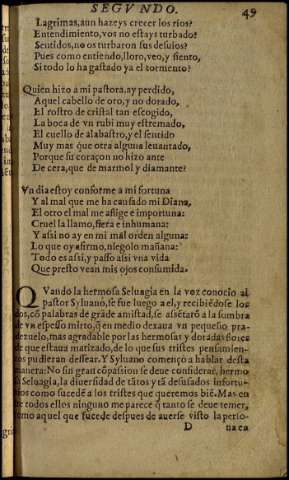 SEGVNDO. 49
Lagrimas, aun hazeys crecer los rios?
Entendimiento, vos no estays turbado?
Sentidos, no os turbaron sus desuios?
Pues como entiendo, lloro, veo, y siento,
Si todo lo ha gastado ya el tormento?
Quien hizo a mi pastora, ay perdido,
Aquel cabello de oro, y no dorado,
El rostro de cristal tan escogido,
La boca de vn rubi muy estremado,
El cuello de alabastro, y el sentido
Muy mas que otra alguna leuantado,
Porque su coraçon no hizo ante
De cera, que de marmol y diamante?
Vn dia estoy conforme a mi fortuna
Y al mal que me ha causado mi Diana,
El otro el mal me aflige e importuna:
Cruel la llamo, fiera e inhumana:
Y assi no ay en mi mal orden alguna:
Lo que oy afirmo, niegolo mañana:
Todo es assi, y passo assi vna vida
Que presto vean mis ojos consumida.
QVando la hermosa Seluagia en la voz conocio al
pastor Syluano, se fue luego a el, y recibiẽdose los
dos, cõ palabras de grãde amistad, se assẽtarõ a la sombra
de vn espesso mirto, q̃ en medio dexaua vn pequeño pra-
dezuelo, mas agradable por las hermosas y doradas flores
de que estaua matizado, de lo que sus tristes pensamien-
tos pudieran dessear. Y Syluano començo a hablar desta
manera: No sin gran cõpassion se deue considerar, hermo
sa Seluagia, la diuersidad de tãtos y tã desusados infortu-
nios como sucedẽ a los tristes que queremos biẽ. Mas en
tre todos ellos ninguno me parece q̃ tanto se deue temer,
como aquel que sucede despues de auerse visto la perso-
D na en